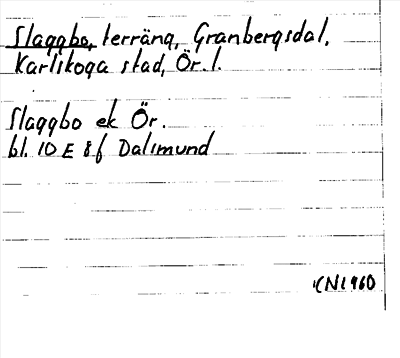 Slaggbo, terräng, Granbergsdal,
Karlskoga stad, Ör. l.
Slaggbo ek Ör.
bl. 10 E 8 f Dalsmund
CN 1960